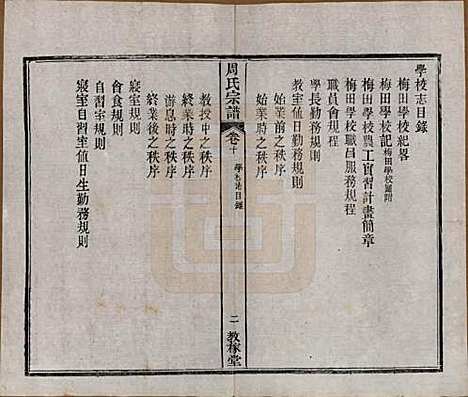 學校志目錄
梅田學校紀畧
梅田學校記梅田學校圖附
梅田學校農工實習計畫簡章
梅田學校職員服務規程
職員會規程
學長勤務規則
教室值日勤務規則
始業前之秩序
始業時之秩序
周氏宗譜
卷十
學校志目錄
二
教稼堂
教授中之秩序
終業時之秩序
游息時之秩序
終業後之秩序
寢室規則
會食規則
自習室規則
寢室自習室值日生勤務規則